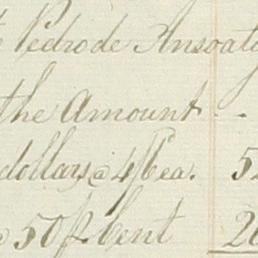 Pedro de Ansoat
the Amount
dollars @ 4/6 ea. 5
@ 50 p Cent 26